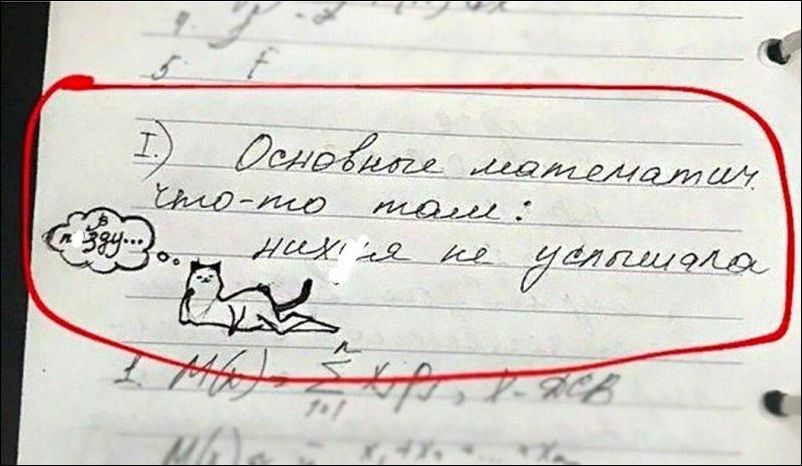 5
I.) Основные математич.
что-то там:
в
п зду...
них я не услышала
1. M(x) = ∑ xᵢpᵢ, X - ДСВ